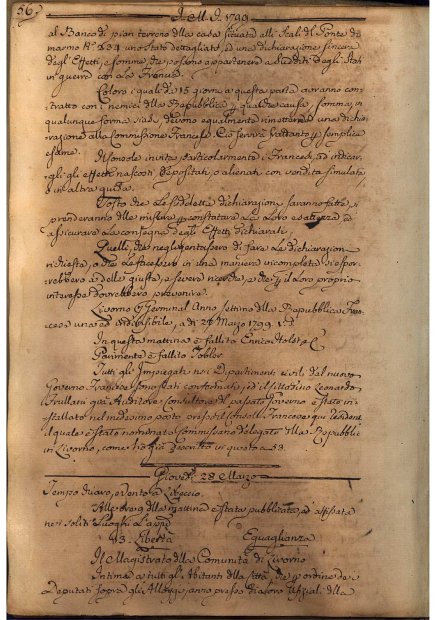 56.
I. M. I. 1799
al Banco di pian terreno della casa situata alli Scali del Ponte di
marmo N.º 234 uno Stato dettagliato, ed una dichiarazione sincera
degli Effetti, e somme che possono appartenere a Sudditi degli Stati
in guerra con la Francia.
Coloro i quali da 15 giorni a questa parte avranno con
tratto con i nemici della Repubblica p qualche causa, o somma, in
qualunque forma siasi, devono egualmente rimettere una dichia
razione alla Commissione Francese. Ciò servirà p semplice
esame.
Il Console invita particolarmente i Francesi, ad indicar
gli gli effetti nascosti, depositati, o alienati con vendita simulata
o in altra guisa.
Tosto che le suddette dichiarazioni saranno fatte, si
prenderanno delle misure p constatare la loro esattezza, ed
assicurare la consegna degli Effetti dichiarati.
Quelli, che negligentassero di fare la dichiarazione
richiesta, o che la facessero in una maniera incompleta si espor
rebbero a delle giuste, e severe ricerche, e che p il loro proprio
interesse dovrebbero prevenire.
Livorno Germinal Anno settimo della Repubblica Fran
cese una ed indivisibile, a dì 27 Marzo 1799
In questa mattina è fallito Enrico
Parimente è fallito Tobler.
Tutti gli Impiegati nei Dipartimenti civili del nuovo
Governo Francese sono stati confermati, ed il Cittadino Leonardo
Frullani quà Auditore Consultore del passato Governo è stato in
stallato nel medesimo posto presso il Console Francese qui residente
il quale è stato nominato Commissario delegato della Repubblica
in Livorno, come si è già descritto in questo a 53.
Giovedì 28 Marzo
Tempo buono, e Vento a Libeccio.
Alle ore 9 della mattina è stata pubblicata, ed affissata
nei soliti Luoghi
N.º 3. Libertà Eguaglianza
Il Magistrato della Comunità di Livorno
Intima a tutti gli Abitanti della Città, che p ordine dei
Deputati sopra gli Alloggi, anno presso di loro Ufiziali della